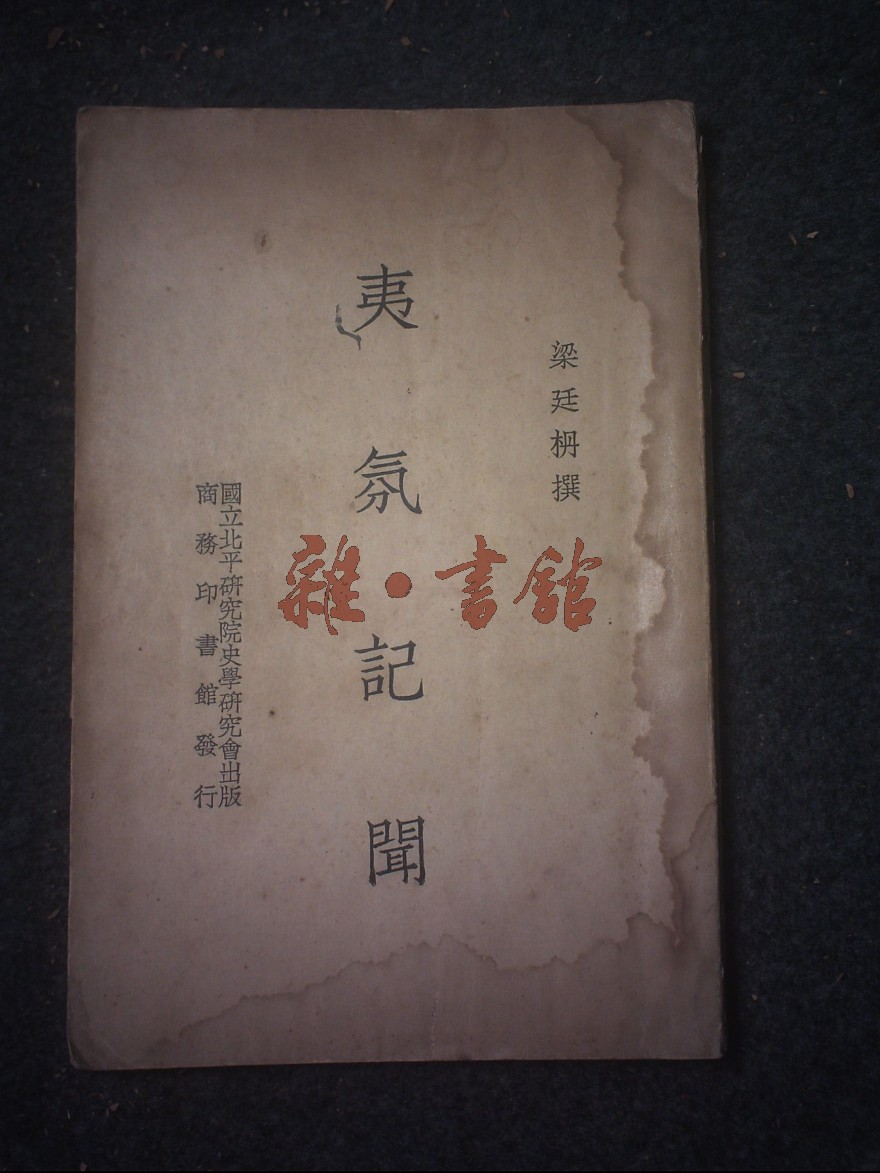 梁廷枏撰
夷氛記聞
國立北平研究院史學研究會出版
商務印書館發行
雜·書館